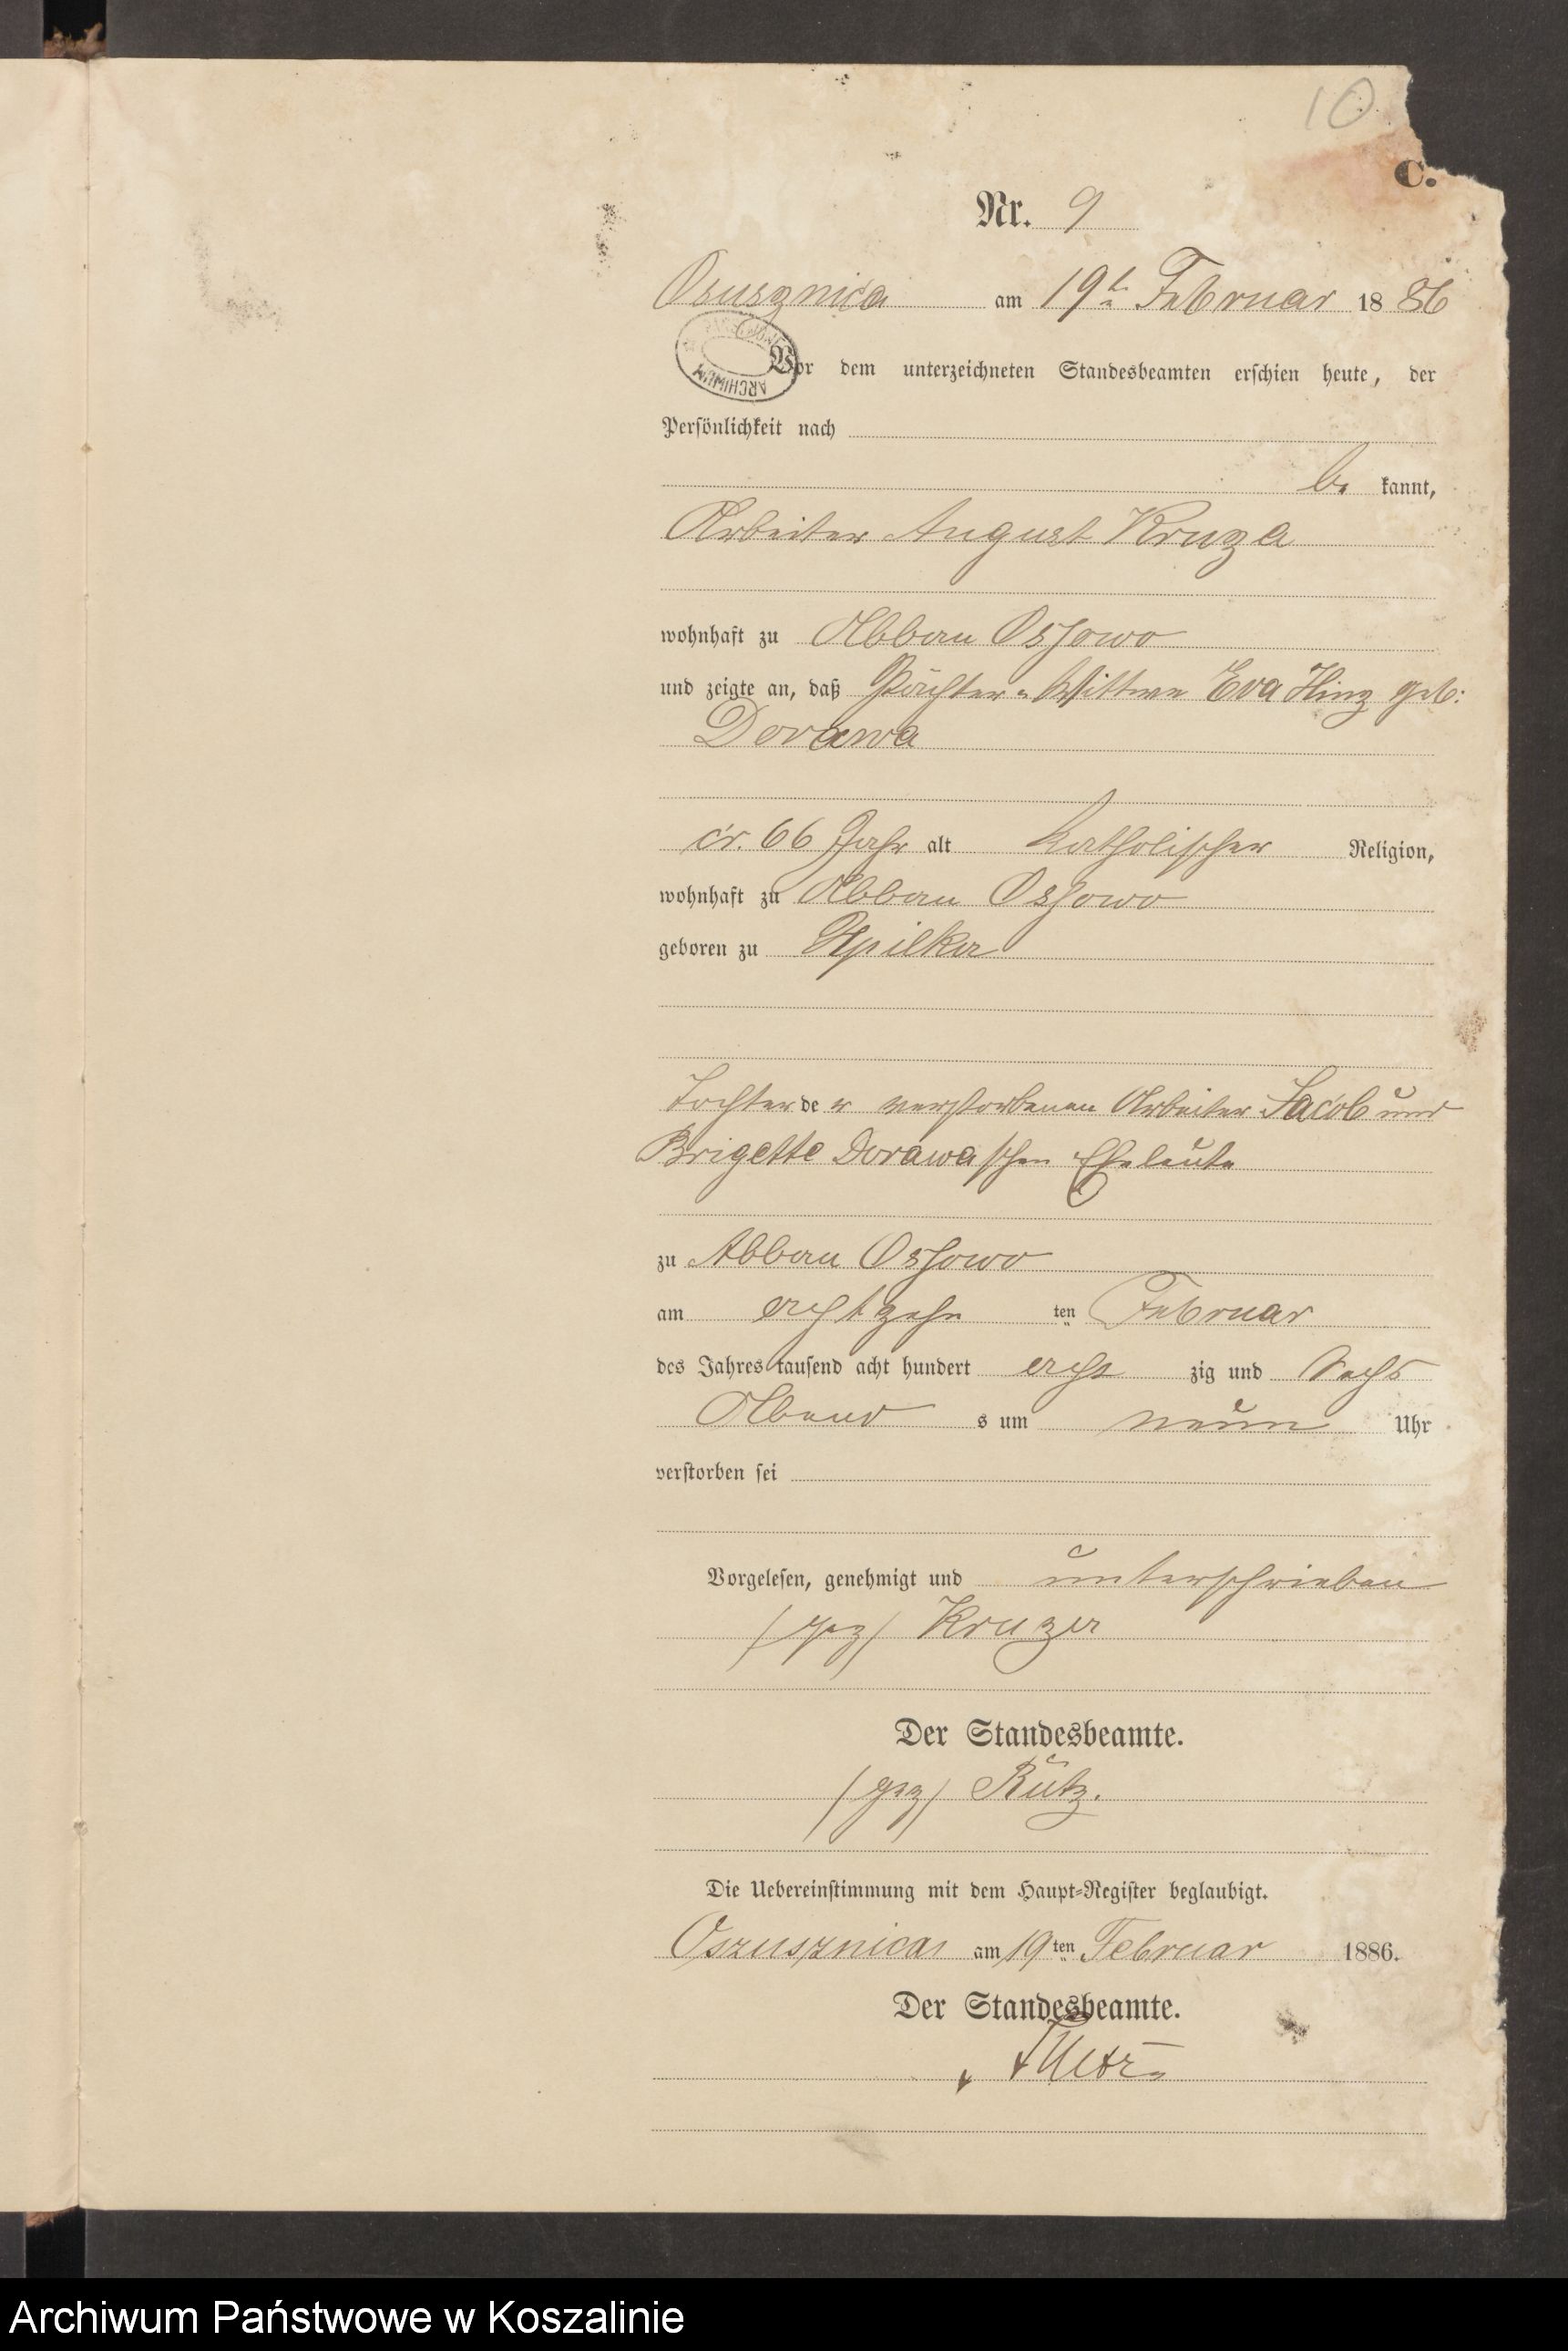 10
C.
Nr. 9
Osusznica am 19t. Februar 1886
Vor dem unterzeichneten Standesbeamten erschien heute, der
Persönlichkeit nach
be kannt,
Arbeiter August Kruza
wohnhaft zu Abbau Ossowo
und zeigte an, daß Pächter-Wittwe Eva Hinz geb:
Dorawa
cr. 66 Jahr alt katholischer Religion,
wohnhaft zu Abbau Ossowo
geboren zu
Tochter der verstorbenen Arbeiter Jacob und
Brigette Dorawaschen Eheleute
zu Abbau Ossowo
am achtzehn ten Februar
des Jahres tausend acht hundert acht zig und sechs
Abend s um neun Uhr
verstorben sei
Vorgelesen, genehmigt und unterschrieben
/gez/ Kruza
Der Standesbeamte.
/gez/ Kutz.
Die Uebereinstimmung mit dem Haupt-Register beglaubigt.
Oszusznica am 19ten Februar 1886.
Der Standesbeamte.
ARCHIWUM
Archiwum Państwowe w Koszalinie